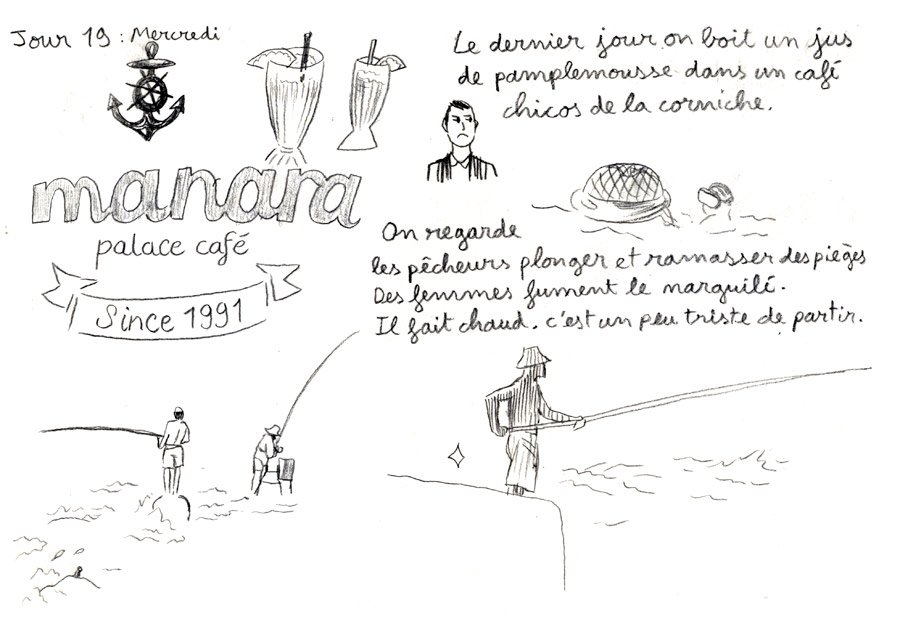 Jour 19 : Mercredi
Le dernier jour on boit un jus
de pamplemousse dans un café
chicos de la corniche.
manara
palace café
Since 1991
On regarde
les pêcheurs plonger et ramasser des pièges
Des femmes fument le narguilé.
Il fait chaud. c'est un peu triste de partir.